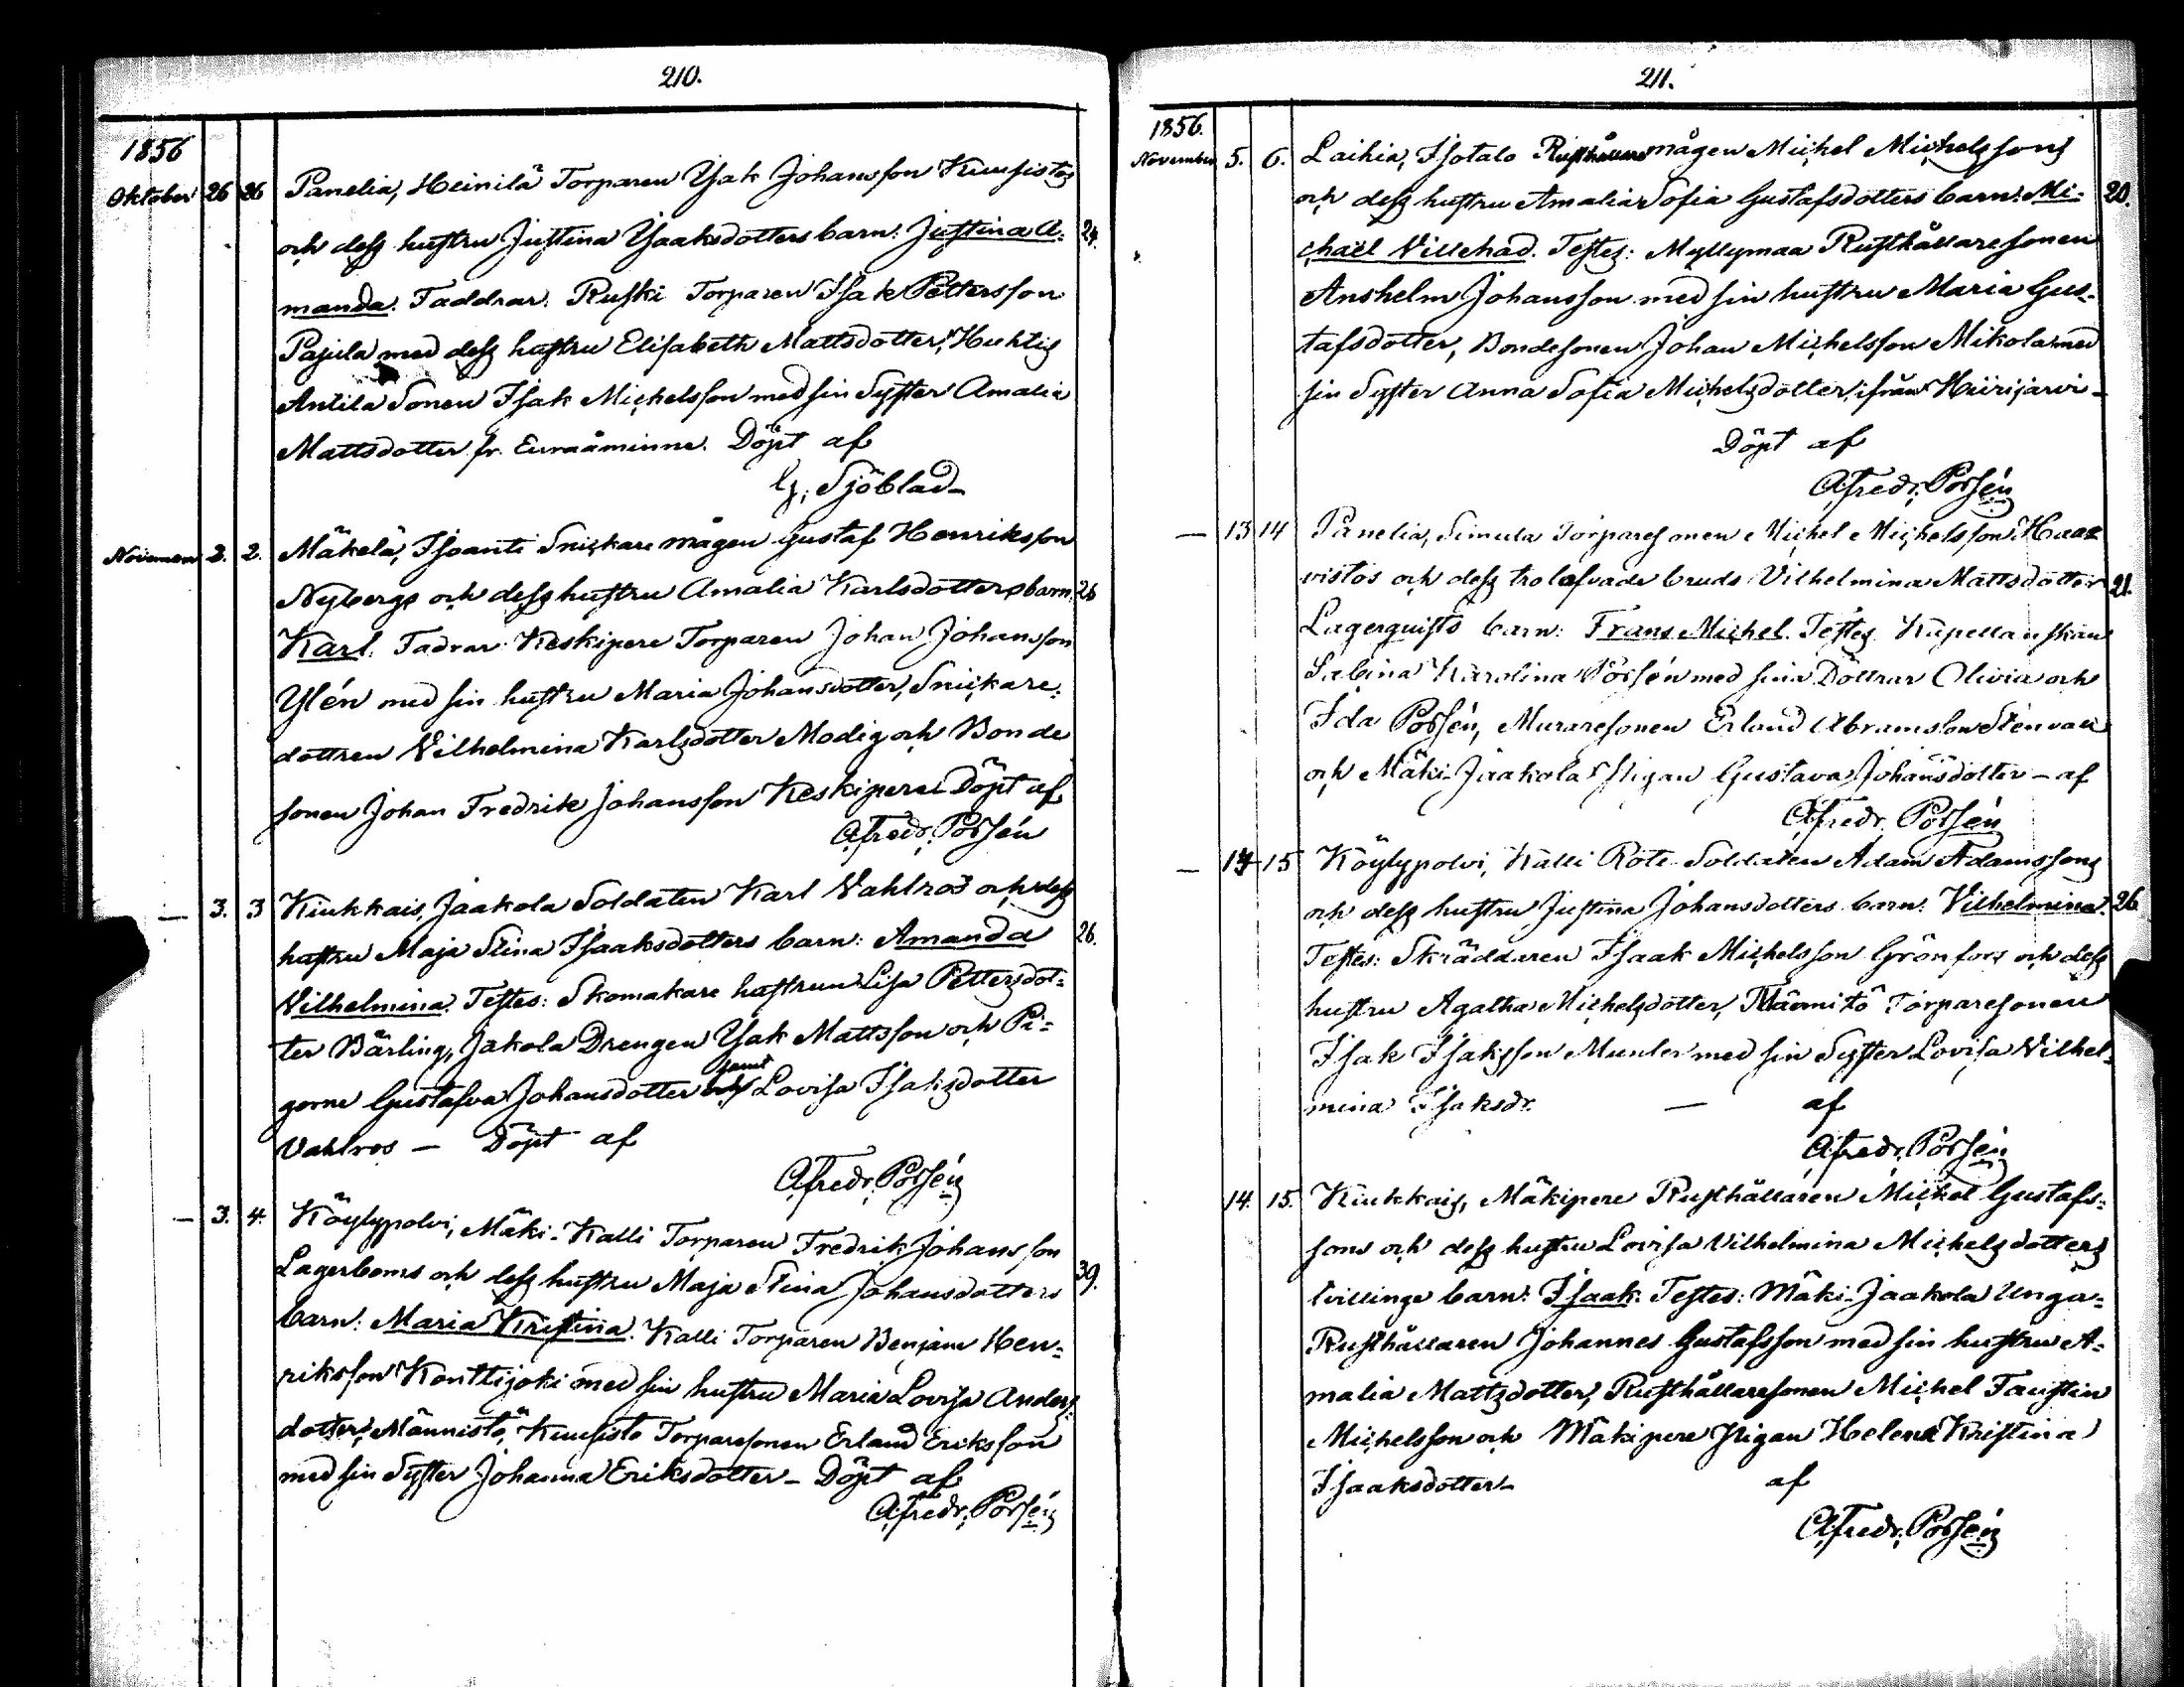 210.
1856
Oktober 26 26 Panelia, Heinilä Torparen Isak Johansson Kuusistos
och dess hustru Justina Isaaksdotters barn: Justina A- 24.
manda. Faddrar: Ruski Torparen Isak Pettersson
Pajula med dess hustru Elisabeth Mattsdotter, Huhtis
Antila Sonen Isak Michelsson med sin Syster Amalia
Mattsdotter fr. Euraåminne. Döpt af
G. Sjöblad
November 2. 2. Mäkelä, Isoanti Snickare mågen Gustaf Henriksson
Nybergs och dess hustru Amalia Karlsdotters barn: 26
Karl. Fadrar: Keskipere Torparen Johan Johansson
Ylén med sin hustru Maria Johansdotter, Snickare-
dottren Vilhelmina Karlsdotter Modig och Bonde
sonen Johan Fredrik Johansson Keskipere. Döpt af
A. Fredr. Porsén
— 3. 3 Kiukkais, Jaakola Soldaten Karl Vahlros och dess
hustru Maja Stina Isaaksdotters barn: Amanda 26.
Vilhelmina. Testes: Skomakare hustrun Lisa Pettersdot-
ter Bärling, Jakola Drengen Isak Mattsson och Pi-
gorne Gustafva Johansdotter samt Lovisa Isaksdotter
Vahlros — Döpt af
A. Fredr. Porsén
— 3. 4. Köylypolvi, Mäki-Kalli Torparen Fredrik Johansson
Lagerboms och dess hustru Maja Stina Johansdotters 39.
barn: Maria Kristina. Kalli Torparen Benjam Hen-
riksson Konttijoki med sin hustru Maria Lovisa Anders-
dotter, Männistö, Kuusisto Torparesonen Erland Eriksson
med sin Syster Johanna Eriksdotter — Döpt af
A. Fredr. Porsén
211.
1856.
November 5. 6. Laihia, Isotalo Rusthållare mågen Michel Michelssons
och dess hustru Amalia Sofia Gustafsdotters barn: Mi- 20.
chaël Villehad. Testes: Myllymaa Rusthållaresonen
Anshelm Johansson med sin hustru Maria Gus-
tafsdotter, Bondesonen Johan Michelsson Mikola med
sin Syster Anna Sofia Michelsdotter, ifrån Hiirijärvi —
Döpt af
A. Fredr. Porsén
— 13 14 Panelia, Simula Torparesonen Michel Michelsson Haa-
vistos och dess trolofvade bruds Vilhelmina Mattsdotter 21.
Lagerquists barn: Frans Michel. Testes: Kapellanskan
Sabina Karolina Porsén med sina Döttrar Olivia och
Ida Porsén, Muraresonen Erland Abramsson Stenvall
och Mäki-Jaakola Pigan Gustava Johansdotter — af
A. Fredr. Porsén
— 14 15 Köylypolvi, Kalli Rote Soldaten Adam Adamssons
och dess hustru Justina Johansdotters barn: Vilhelmina. 26.
Testes: Skräddaren Isaak Michelsson Grönfors och dess
hustru Agatha Michelsdotter, Männistö Torparesonen
Isak Isaksson Munter med sin Syster Lovisa Vilhel-
mina Isaksdr. — af
A. Fredr. Porsén
14. 15. Kiukkais, Mäkipere Rusthållaren Michel Gustafs-
sons och dess hustru Lovisa Vilhelmina Michelsdotters
tvillinge barn: Isaak. Testes: Mäki-Jaakola Unga-
Rusthållaren Johannes Gustafsson med sin hustru A-
malia Mattsdotter, Rusthållaresonen Michel Faustin
Michelsson och Mäkipere Pigan Helena Kristina
Isaaksdotter — af
A. Fredr. Porsén